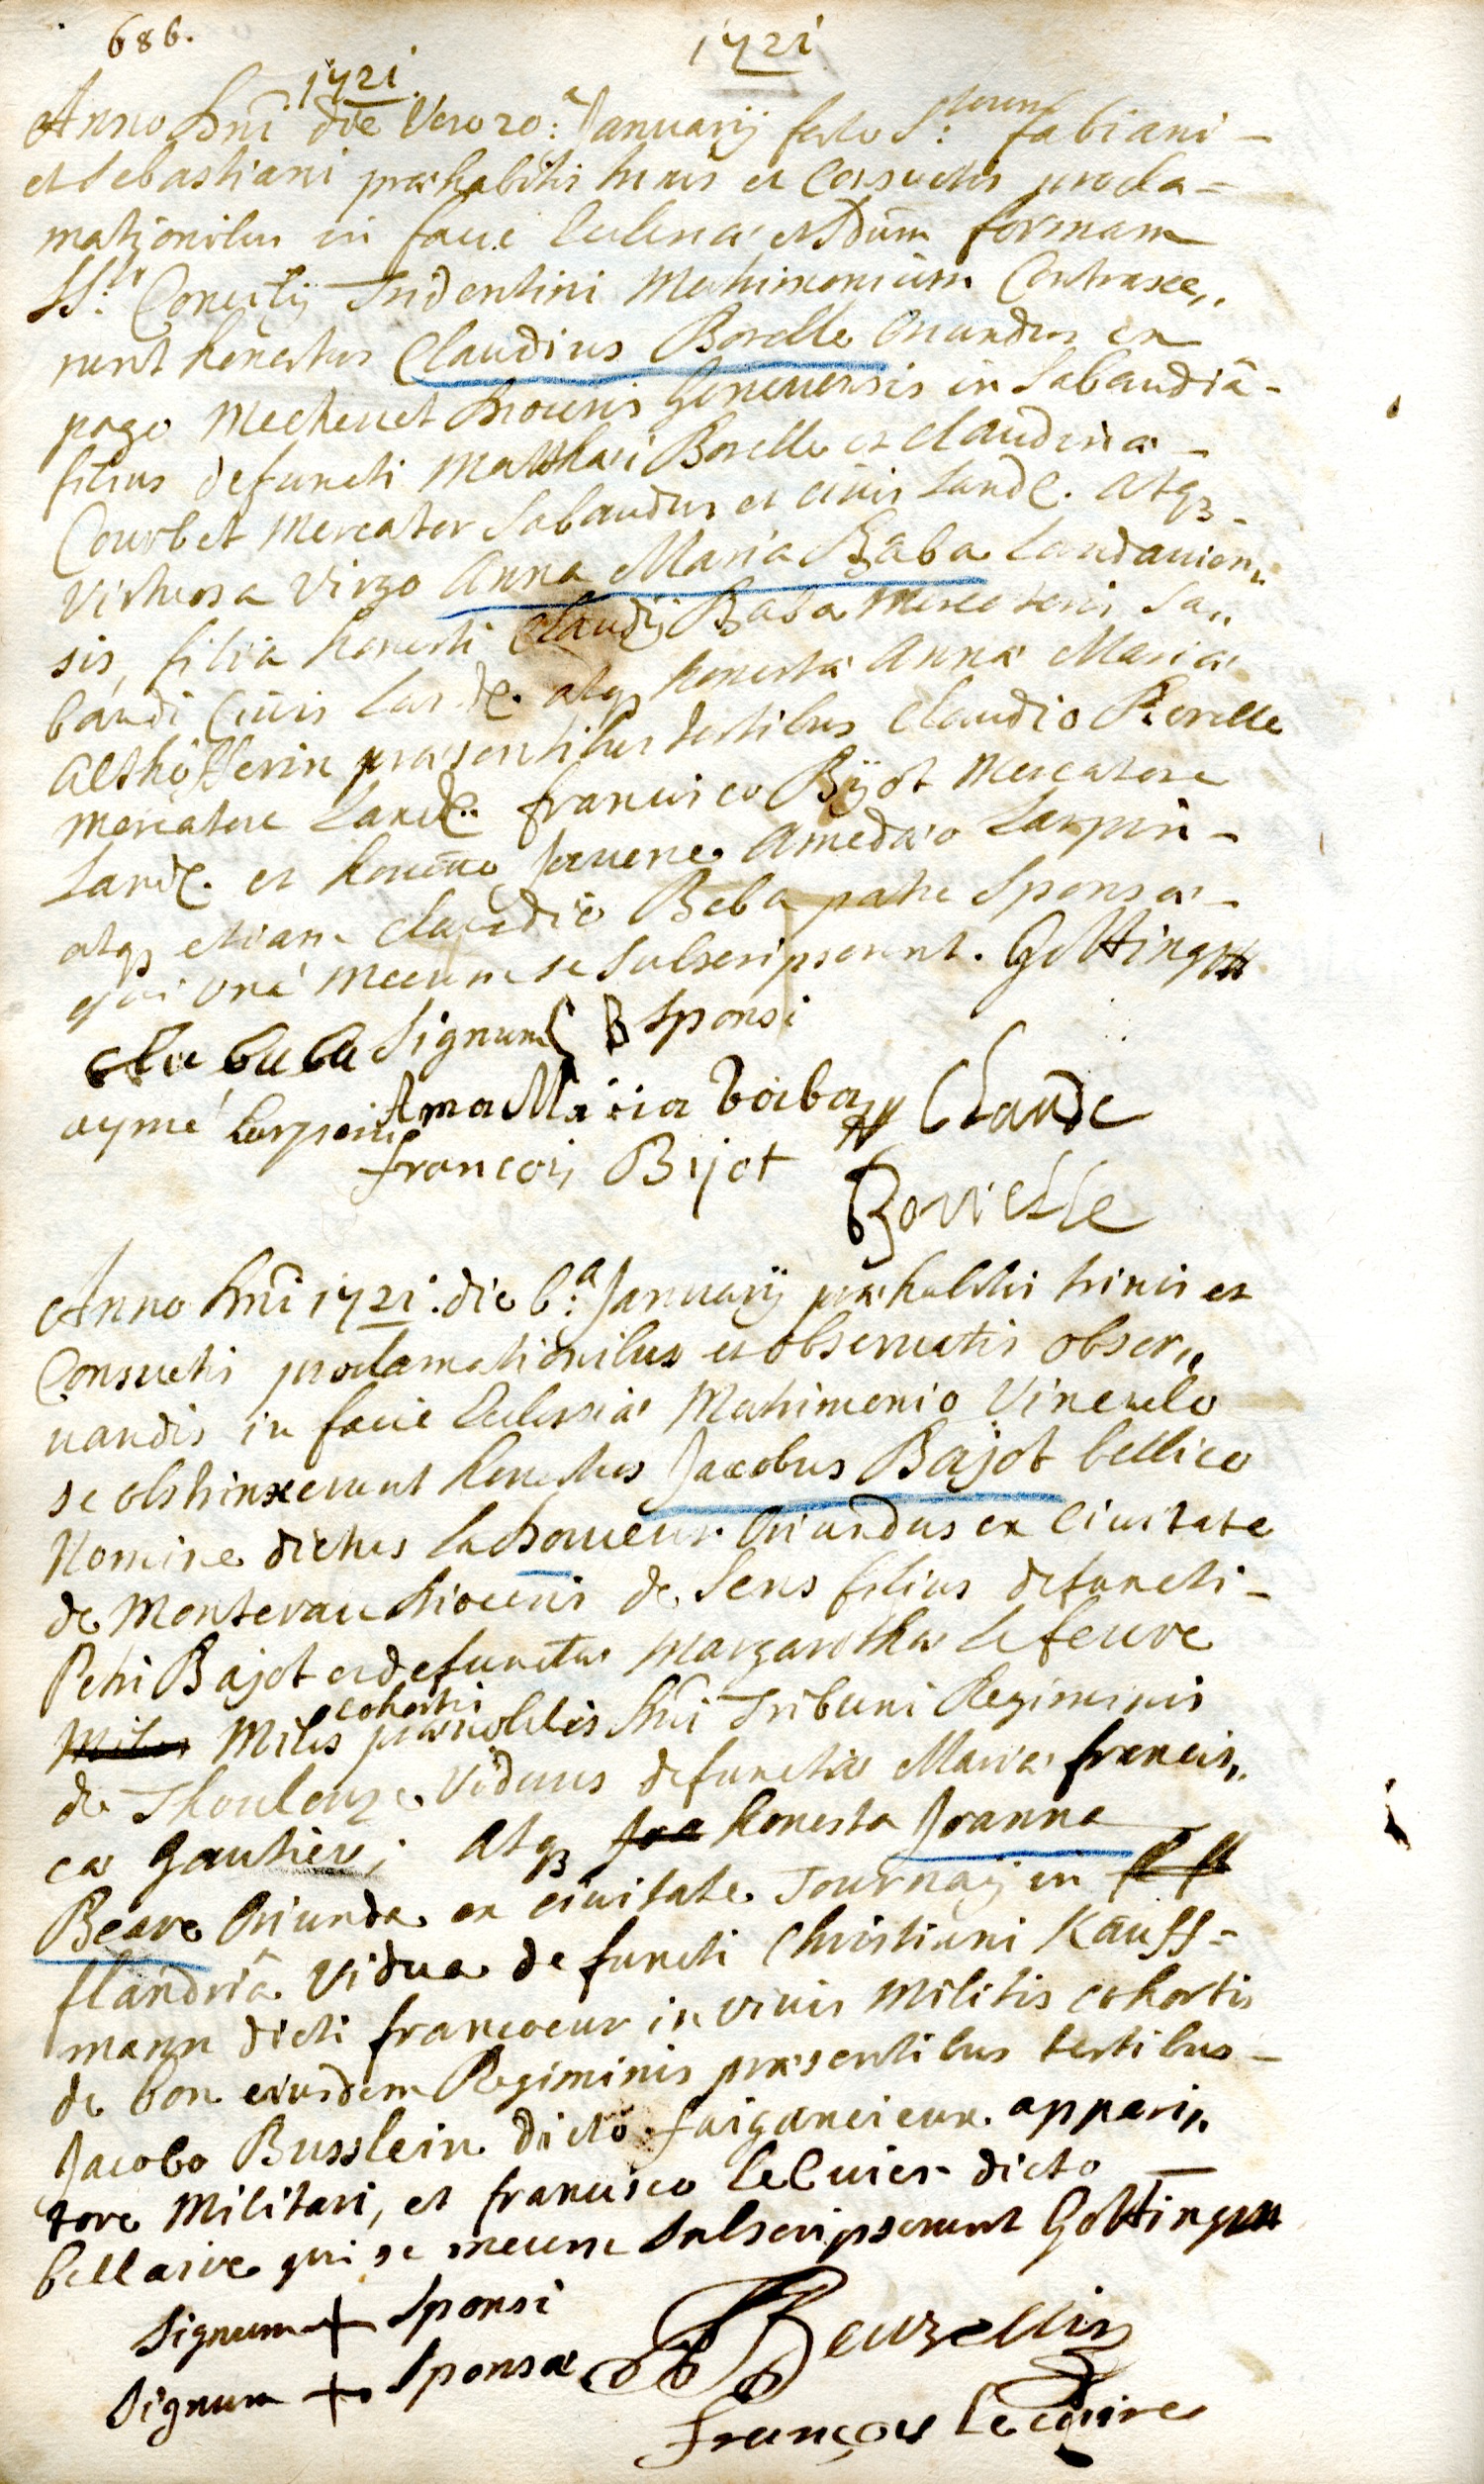 686.
1721
1721.
Anno Dni die Vero 20:a Januarij festo S:torum fabiani -
et Sebastiani præhabitis trinis et Consuetis procla=
mationibus in facie Ecclesiæ et Sdum formam
SS:ti Concilij Tridentini Matrimonium Contraxe,,
runt honestus Claudius Borelle oriundus ex
pago Mechenet Diocesis Genevensis in Sabaudiâ -
filius defuncti Matthæi Borelle et Claudinæ -
Courbet Mercator Sabaudus et civis Land. atq3 -
virtuosa virgo Anna Maria Baba Landavien,,
sis, filia honesti Claudij Baba Mercatoris Sa,,
baudi Civis Land. atq3 honestæ Annæ Mariæ
Althofferin præsentibus testibus Claudio Borelle
mercatore Land. francisco Bijot Mercatore
Land. et honesto Juvene Amedæo Larpin -
atq3 etiam Claudio Baba patre Sponsæ -
qui una mecum se Subscripserunt. Gotting
cla baba Signum B Sponsi
Anna Maria Baba Claude
aymé Larpin
francois Bijot
Borrelle
Anno Dni 1721. die 6:a Januarij præhabitis trinis et
Consuetis proclamationibus et observatis obser,,
vandis in facie Ecclesiæ Matrimonio Vinculo
se obstrinxerunt honestus Jacobus Bajot bellico
Nomine dictus la douceur Oriundus ex Civitate
de Monterau diocesis de Sens filius defuncti -
Petri Bajot et defunctæ Margarethæ lefeuvre
Miles Miles cohortis prænobilis Dni Tribuni Regiminis
de Thoulouze Viduus defunctæ Mariæ francis,,
cæ Gautier; atq3 Joa honesta Joanna
Beave Oriunda ex civitate Tournaij in
flandriâ Vidua defuncti Christiani Kauff=
mann dicti francoeur in vivis Militis cohortis
de bon eiusdem Regiminis præsentibus testibus -
Jacobo Busslein dicto appari,,
tore Militari, et francisco lecuier dicto
bellaire qui se mecum Subscripserunt Gotting
Signum + Sponsi
Signum + Sponsæ
Beuzellin
françois lecuire